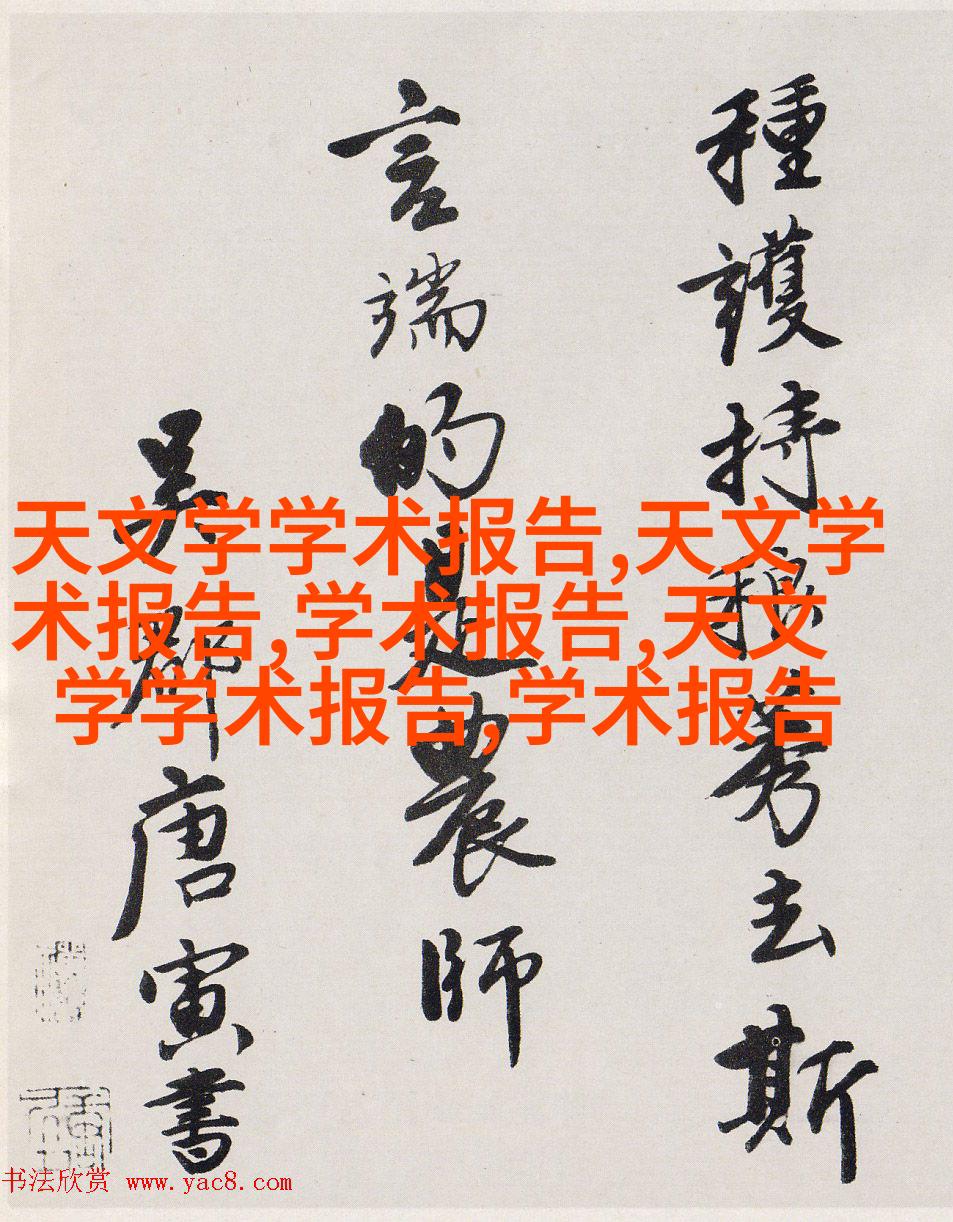 種護持稂莠去斯
言端的是農師
吳郡唐寅書
天文学学术报告,天文学
术报告,学术报告,天文
学学术报告,学术报告
书法欣赏 www.yac8.com